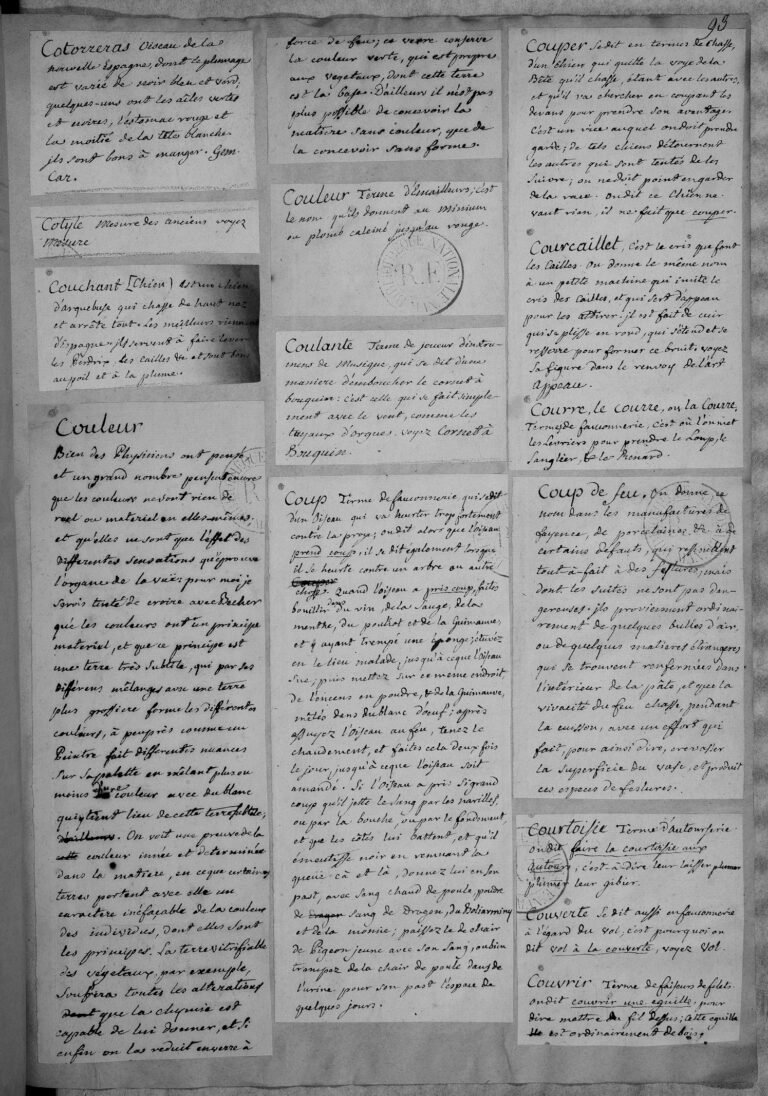 93
Cotorreras Oiseau de la
nouvelle Espagne, dont le plumage
est varié de noir bleu et verd,
quelques-uns ont les aîles vertes
et noires, l'estomac rouge et
la moitié de la tête blanche.
ils sont bons à manger. Gem.
Car.
Cotyle Mesure des anciens voyez
Mesure
Couchant [Chien) est un chien
d'arquebuse qui chasse de haut nez
et arrête tout. Les meilleurs viennent
d'Espagne. ils servent à faire lever
les Perdrix, les Cailles &c et sont bons
au poil et à la plume.
Couleur
Bien des Physiciens ont pensé
et un grand nombre pensent encore
que les couleurs ne sont rien de
réel ou materiel en elles-mêmes,
et qu'elles ne sont que l'effet des
differentes sensations qu'éprouve
l'organe de la vue; pour moi je
serois tenté de croire avec Becher
que les couleurs ont un principe
materiel, et que ce principe est
une terre très subtile, qui par ses
différens mêlanges avec une terre
plus grossiere forme les differentes
couleurs, à peu près comme un
Peintre fait differentes nuances
sur sa palette en mêlant plus ou
moins d'une couleur avec du blanc
qui tient lieu de cette terre subtile;
d'ailleurs. On voit une preuve de la
couleur innée et determinée
dans la matiere, en ce que certaines
terres portent avec elle un
caractere inéfaçable de la couleur
des individus, dont elles sont
les principes. La terre vitrifiable
des végetaux, par exemple,
soufrira toutes les alterations
que la chymie est
capable de lui donner, et si
enfin on la reduit en verre à
force de feu; ce verre conserve
la couleur verte, qui est propre
aux vegetaux, dont cette terre
est la base. D'ailleurs il n'est pas
plus possible de concevoir la
matiere sans couleur, que de
la concevoir sans forme.
Couleur Terme d'Emailleurs; c'est
le nom qu'ils donnent au Minium
ou plomb calciné jusqu'au rouge.
BIBLIOTHEQUE NATIONALE
R.F
Coulante Terme de joueur d'instru-
mens de Musique, qui se dit d'une
maniere d'emboucher le cornet à
bouquin: c'est celle qui se fait simple-
ment avec le vent, comme les
tuyaux d'orgues. voyez Cornet à
Bouquin.
Coup Terme de fauconnerie, qui se dit
d'un Oiseau qui va heurter trop fortement
contre la proye; on dit alors que l'oiseau
prend coup. il se dit également lorsque
il se heurte contre un arbre ou autre
chose. Quand l'oiseau a pris coup, faites
bouillir dans du vin, de la Sauge, de la
menthe, du pouliot et de la Guimauve,
et y ayant trempé une éponge; étuvez
en le lieu malade, jusqu'à ce que l'Oiseau
sue; puis mettez sur ce même endroit
de l'encens en poudre, & de la Guimauve,
mêlés dans du blanc d'œuf; après
essuyez l'Oiseau au feu, tenez le
chaudement, et faites cela deux fois
le jour, jusqu'à ce que l'oiseau soit
amandé. Si l'Oiseau a pris si grand
coup qu'il jette le sang par les narilles,
ou par la bouche, ou par le fondement,
et que les côtés lui battent, et qu'il
émeutisse noir en remuant la
queue çà et là, donnez lui en son
past, avec sang chaud de poule, poudre
de sang de Dragon, du Boliarminy
et de la momie; paissez le de chair
de Pigeon jeune avec son Sang, ou bien
trempez de la chair de poule dans de
l'urine, pour son past l'espace de
quelques jours.
Couper Se dit en termes de Chasse,
d'un chien qui quitte la voye de la
Bête qu'il chasse, étant avec les autres,
et qu'il va chercher en coupant les
devans pour prendre son avantage.
C'est un vice auquel on doit prendre
garde; de tels chiens détournent
les autres qui sont tentés de les
suivre; on ne doit point en garder
de la race. On dit ce Chien ne
vaut rien, il ne fait que couper.
Courcaillet, c'est le cris que font
les Cailles. On donne le même nom
à un petite machine qui imite le
cris des Cailles, et qui sert d'appeau
pour les attirer: il est fait de cuir
qui se plisse en rond, qui s'étend et se
resserre pour former ce bruit. voyez
sa figure dans le renvoy de l'art
Appeau.
Courre, le courre, ou la Courre,
Termes de fauconnerie, c'est où l'on met
les Levriers pour prendre le Loup, le
Sanglier, & le Renard.
Coup de feu. On donne ce
nom dans les manufactures de
fayence, de porcelaine &c à de
certains défauts, qui ressemblent
tout-à-fait à des feslures; mais
dont les suites ne sont pas dan-
gereuses: ils proviennent ordinai-
rement de quelques bulles d'air,
ou de quelques matieres étrangeres
qui se trouvent renfermées dans
l'intérieur de la pâte, et que la
vivacité du feu chasse, pendant
la cuisson, avec un effort qui
fait, pour ainsi dire, crevasser
la superficie du vase, et produit
ces especes de feslures.
Courtoisie Terme d'Autourserie
on dit faire la courtoisie aux
autours, c'est à dire leur laisser plumer
plumer leur gibier.
Couverte Se dit aussi en fauconnerie
à l'égard du vol, c'est pourquoi on
dit vol à la couverte, voyez Vol.
Couvrir Terme de faiseurs de filets
on dit couvrir une eguille. pour
dire mettre du fil dessus; cette eguille
est ordinairement de bois.